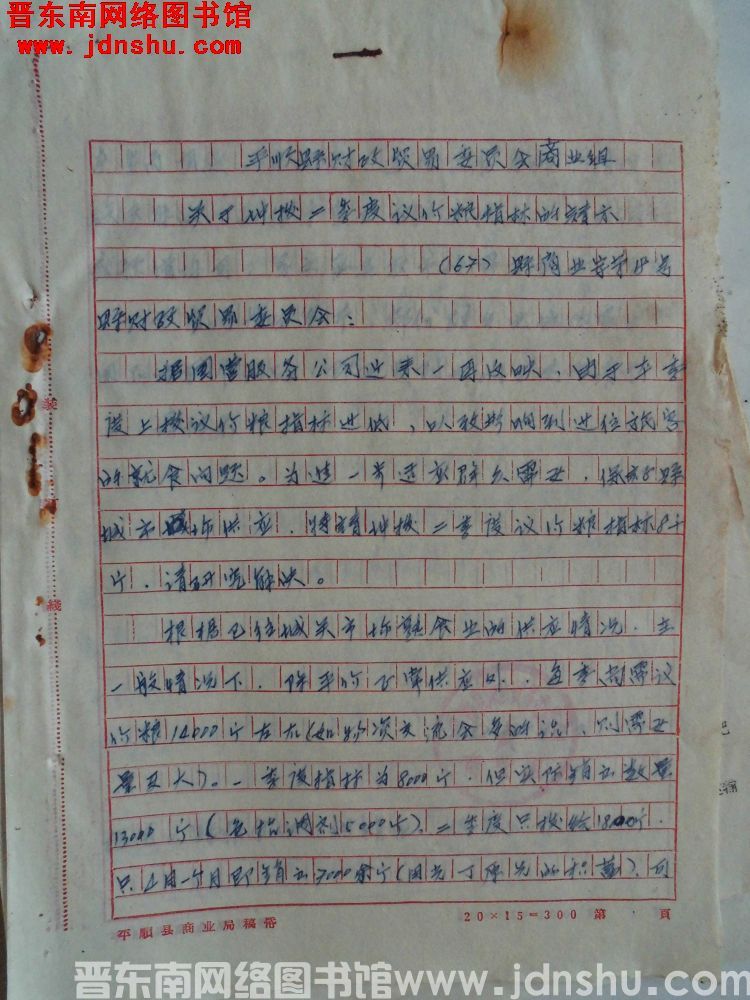 晋东南网络图书馆
www.jdnshu.com
平顺县财政贸易委员会商业组
关于补拨二季度议价粮指标的请示
(67)县商业字第18号
县财政贸易委员会:
据国营服务公司近来一再反映,由于本季
度上拨议价粮指标过低,以致影响到过往旅客
的就食问题。为进一步适应群众需要,保证县
城市场供应,特请补拨二季度议价粮指标8千
斤,请研究解决。
根据已往城关市场熟食业的供应情况,在
一般情况下,除平价正常供应外,每季尚需议
价粮14000斤左右(如物资交流会多的话,则需要
量更大)。一季度指标为8000斤,但实际销出数量
13000斤(包括调剂5000斤)二季度只拨给1800斤.
只4月一个月即销出7000余斤(用光了原先的积蓄)可
平順县商业局稿帋
20×15=300 第 頁
装
訂
綫
晋东南网络图书馆www.jdnshu.com